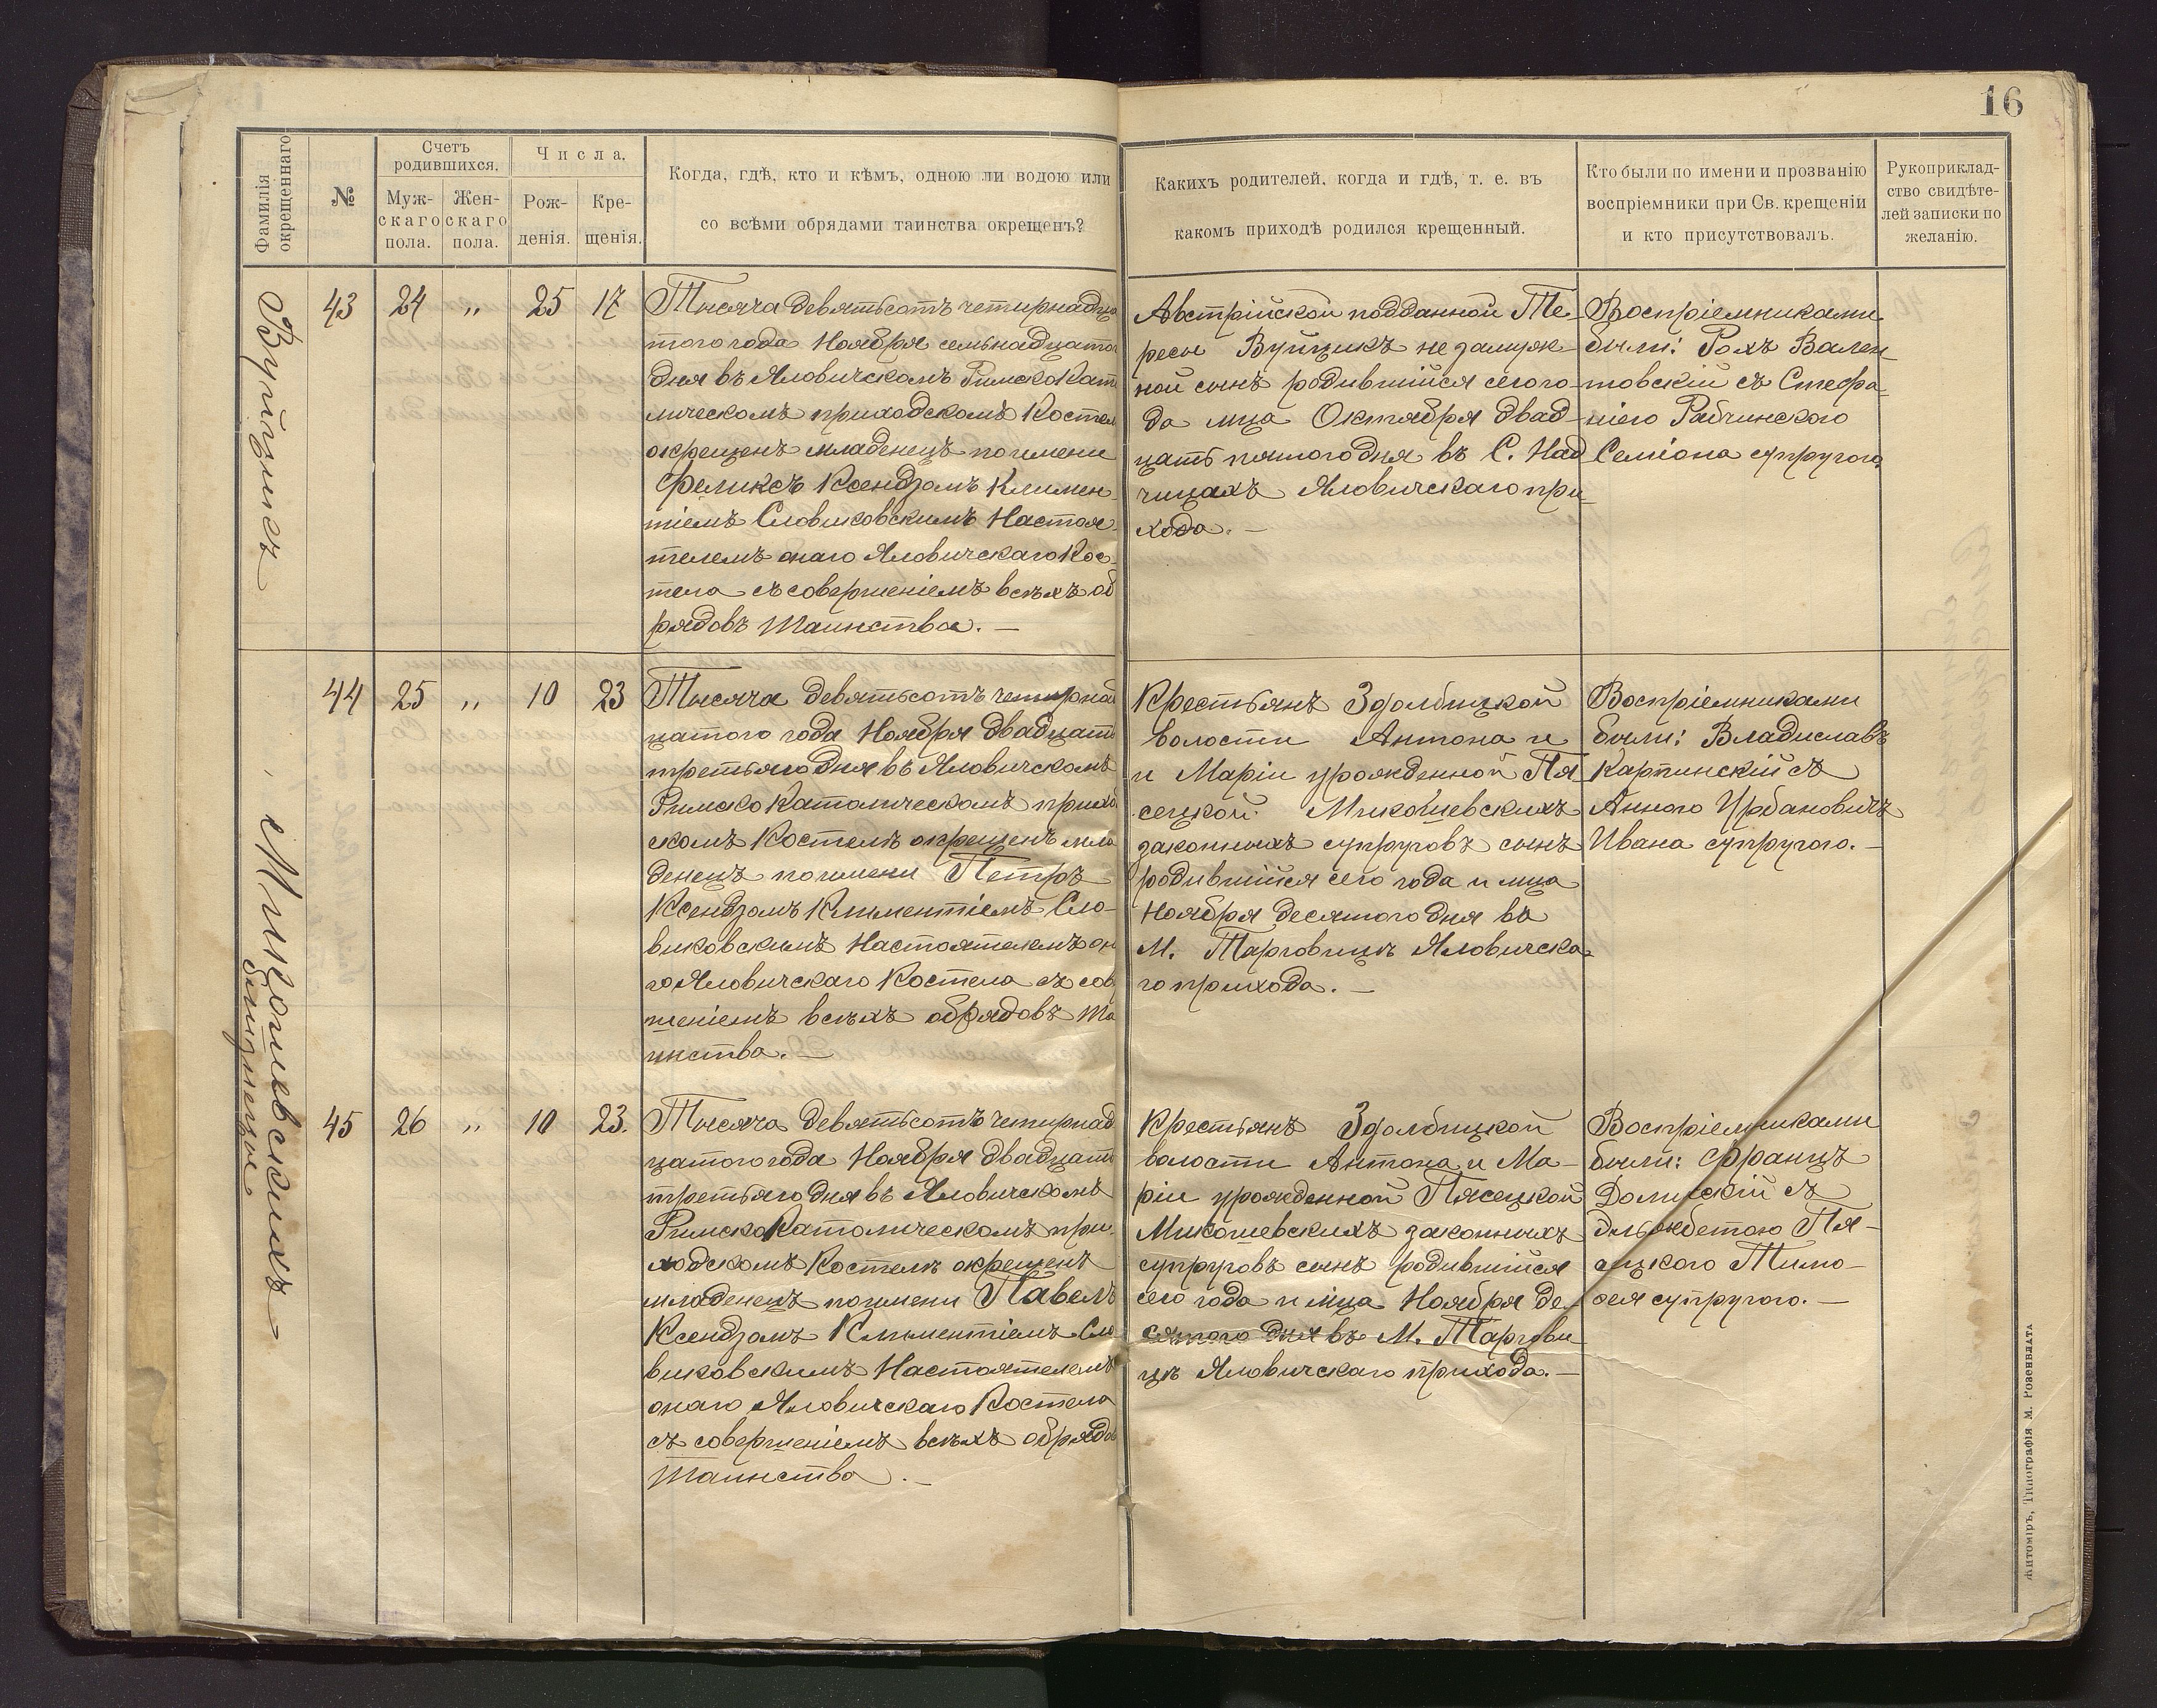 16
Фамилія окрещеннаго
№
Счетъ родившихся.
Мужскаго пола.
Женскаго пола.
Числа.
Рожденія.
Крещенія.
Когда, гдѣ, кто и кѣмъ, одною ли водою или
со всѣми обрядами таинства окрещенъ?
Какихъ родителей, когда и гдѣ, т. е. въ
какомъ приходѣ родился крещенный.
Кто были по имени и прозванію
воспріемники при Св. крещеніи
и кто присутствовалъ.
Рукоприклад-
ство свидѣте-
лей записки по
желанію.
Вуйцикъ
43 24 „ 25 17
Тысяча девятьсотъ четырнадца
того года Ноября семьнадцато
дня въ Яловичскомъ Римско Кат
лическомъ приходскомъ Костел
окрещенъ младенецъ по имени
Феликсъ Ксендзомъ Климен-
тіемъ Словиковскимъ Настоя-
телемъ онаго Яловичскаго Кос-
тела съ совершеніемъ всѣхъ об
рядовъ Таинства. —
Австрійской подданной Те-
ресы Вуйцикъ не замуж-
ной сынъ родившійся сего го-
да мца Октября двад-
цать пятого дня въ С. Над
чицахъ Яловичскаго при-
хода. —
Воспріемниками
были: Рохъ Вален-
товскій съ Стефа-
ніею Рабчинского
Семіона супругою.
Микошевскихъ
близнецы
44 25 „ 10 23
Тысяча девятьсотъ четырнад
цатого года Ноября двадцать
третьяго дня въ Яловичскомъ
Римско Католическомъ приход
скомъ Костелѣ окрещенъ мла
денецъ по имени Петръ
Ксендзомъ Климентіемъ Сло-
виковскимъ Настоятелемъ он
го Яловичскаго Костела съ сов
шеніемъ всѣхъ обрядовъ Та
инства. —
Крестьянъ Здолбицкой
волости Антона и
и Маріи урожденной Пя-
сецкой Микошевскихъ
законныхъ супруговъ сынъ
родившійся сего года и мца
Ноября десятого дня въ
М. Тарговицѣ Яловичска-
го прихода. —
Воспріемниками
были: Владиславъ
Карпинскій съ
Анною Урбановичъ
Ивана супругою. —
45 26 „ 10 23.
Тысяча девятьсотъ четырнад
цатого года Ноября двадцать
третьяго дня въ Яловичскомъ
Римско Католическомъ при-
ходскомъ Костелѣ окрещенъ
младенецъ по имени Павелъ
Ксендзомъ Климентіемъ Сло
виковскимъ Настоятелемъ
онаго Яловичскаго Костела
съ совершеніемъ всѣхъ обрядов
Таинства. —
Крестьянъ Здолбицкой
волости Антона и Ма-
ріи урожденной Пясецкой
Микошевскихъ законныхъ
супруговъ сынъ родившійся
сего года и мца Ноября де-
сятого дня въ М. Таргови
цѣ Яловичскаго прихода. —
Воспріемниками
были: Францъ
Долинскій съ
Эльжбетою Пя-
сецкого Тимо-
фея супругою. —
Житоміръ, Типографія М. Розенблата